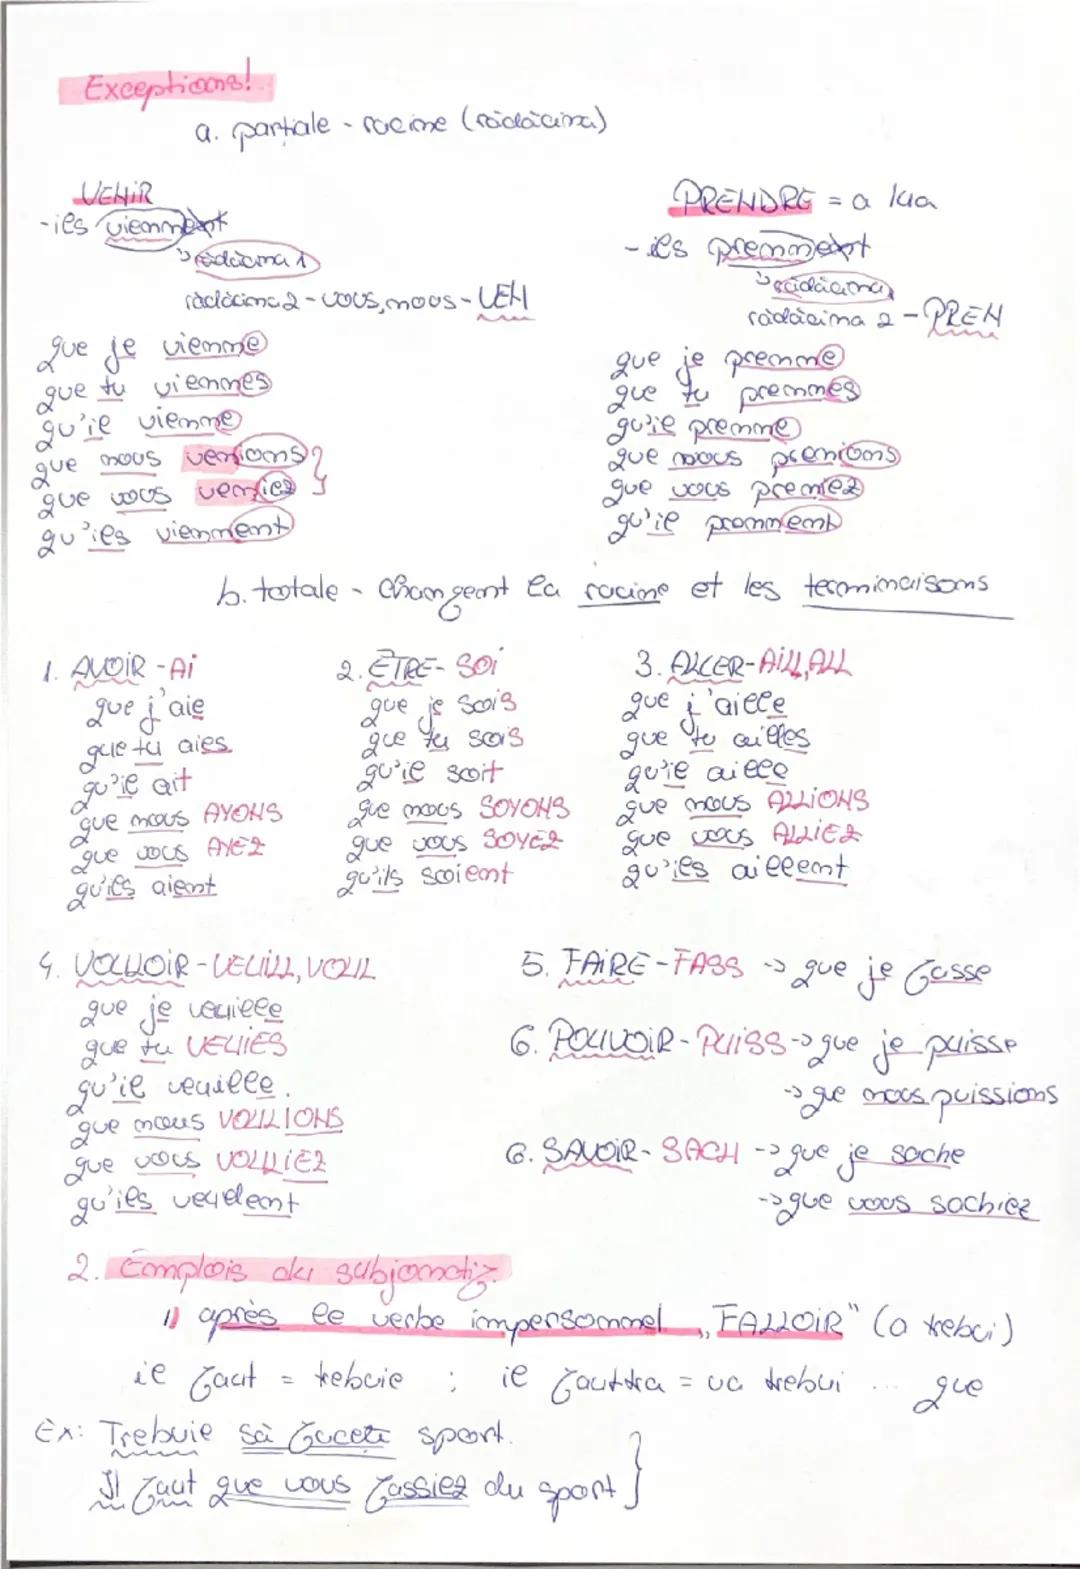 Exceptions!
a. parțiale - racine (rădăcina)
VENIR
-ils viennent
rădăcina 1
rădăcina 2 - vous, nous - VEN
que je vienne
que tu viennes
qu'il vienne
que nous venions
que vous veniez
qu'ils viennent
PRENDRE = a lua
- ils prennent
rădăcina
rădăcina 2 - PREN
que je prenne
que tu prennes
qu'il prenne
que nous prenions
que vous preniez
qu'il prennent
b. totale - Changent la racine et les terminaisons
1. AVOIR - AI
que j'aie
que tu aies
qu'il ait
que nous AYONS
que vous AYEZ
qu'ils aient
2. ÊTRE - SOI
que je sois
que tu sois
qu'il soit
que nous SOYONS
que vous SOYEZ
qu'ils soient
3. ALLER - AILL, ALL
que j'aille
que tu ailles
qu'il aille
que nous ALLIONS
que vous ALLIEZ
qu'ils aillent
4. VOULOIR - VEUILL, VOUL
que je veuille
que tu VEUIES
qu'il veuille.
que nous VOULIONS
que vous VOULIEZ
qu'ils veuillent
5. FAIRE - FASS -> que je fasse
6. POUVOIR - PUISS -> que je puisse
-> que nous puissions
6. SAVOIR - SACH -> que je sache
-> que vous sachiez
2. Emplois du subjonctif
1) après le verbe impersonnel „FALLOIR" (a trebui)
il faut = trebuie ; il faudra = va trebui ... que
Ex: Trebuie să faceți sport.
Il faut que vous fassiez du sport